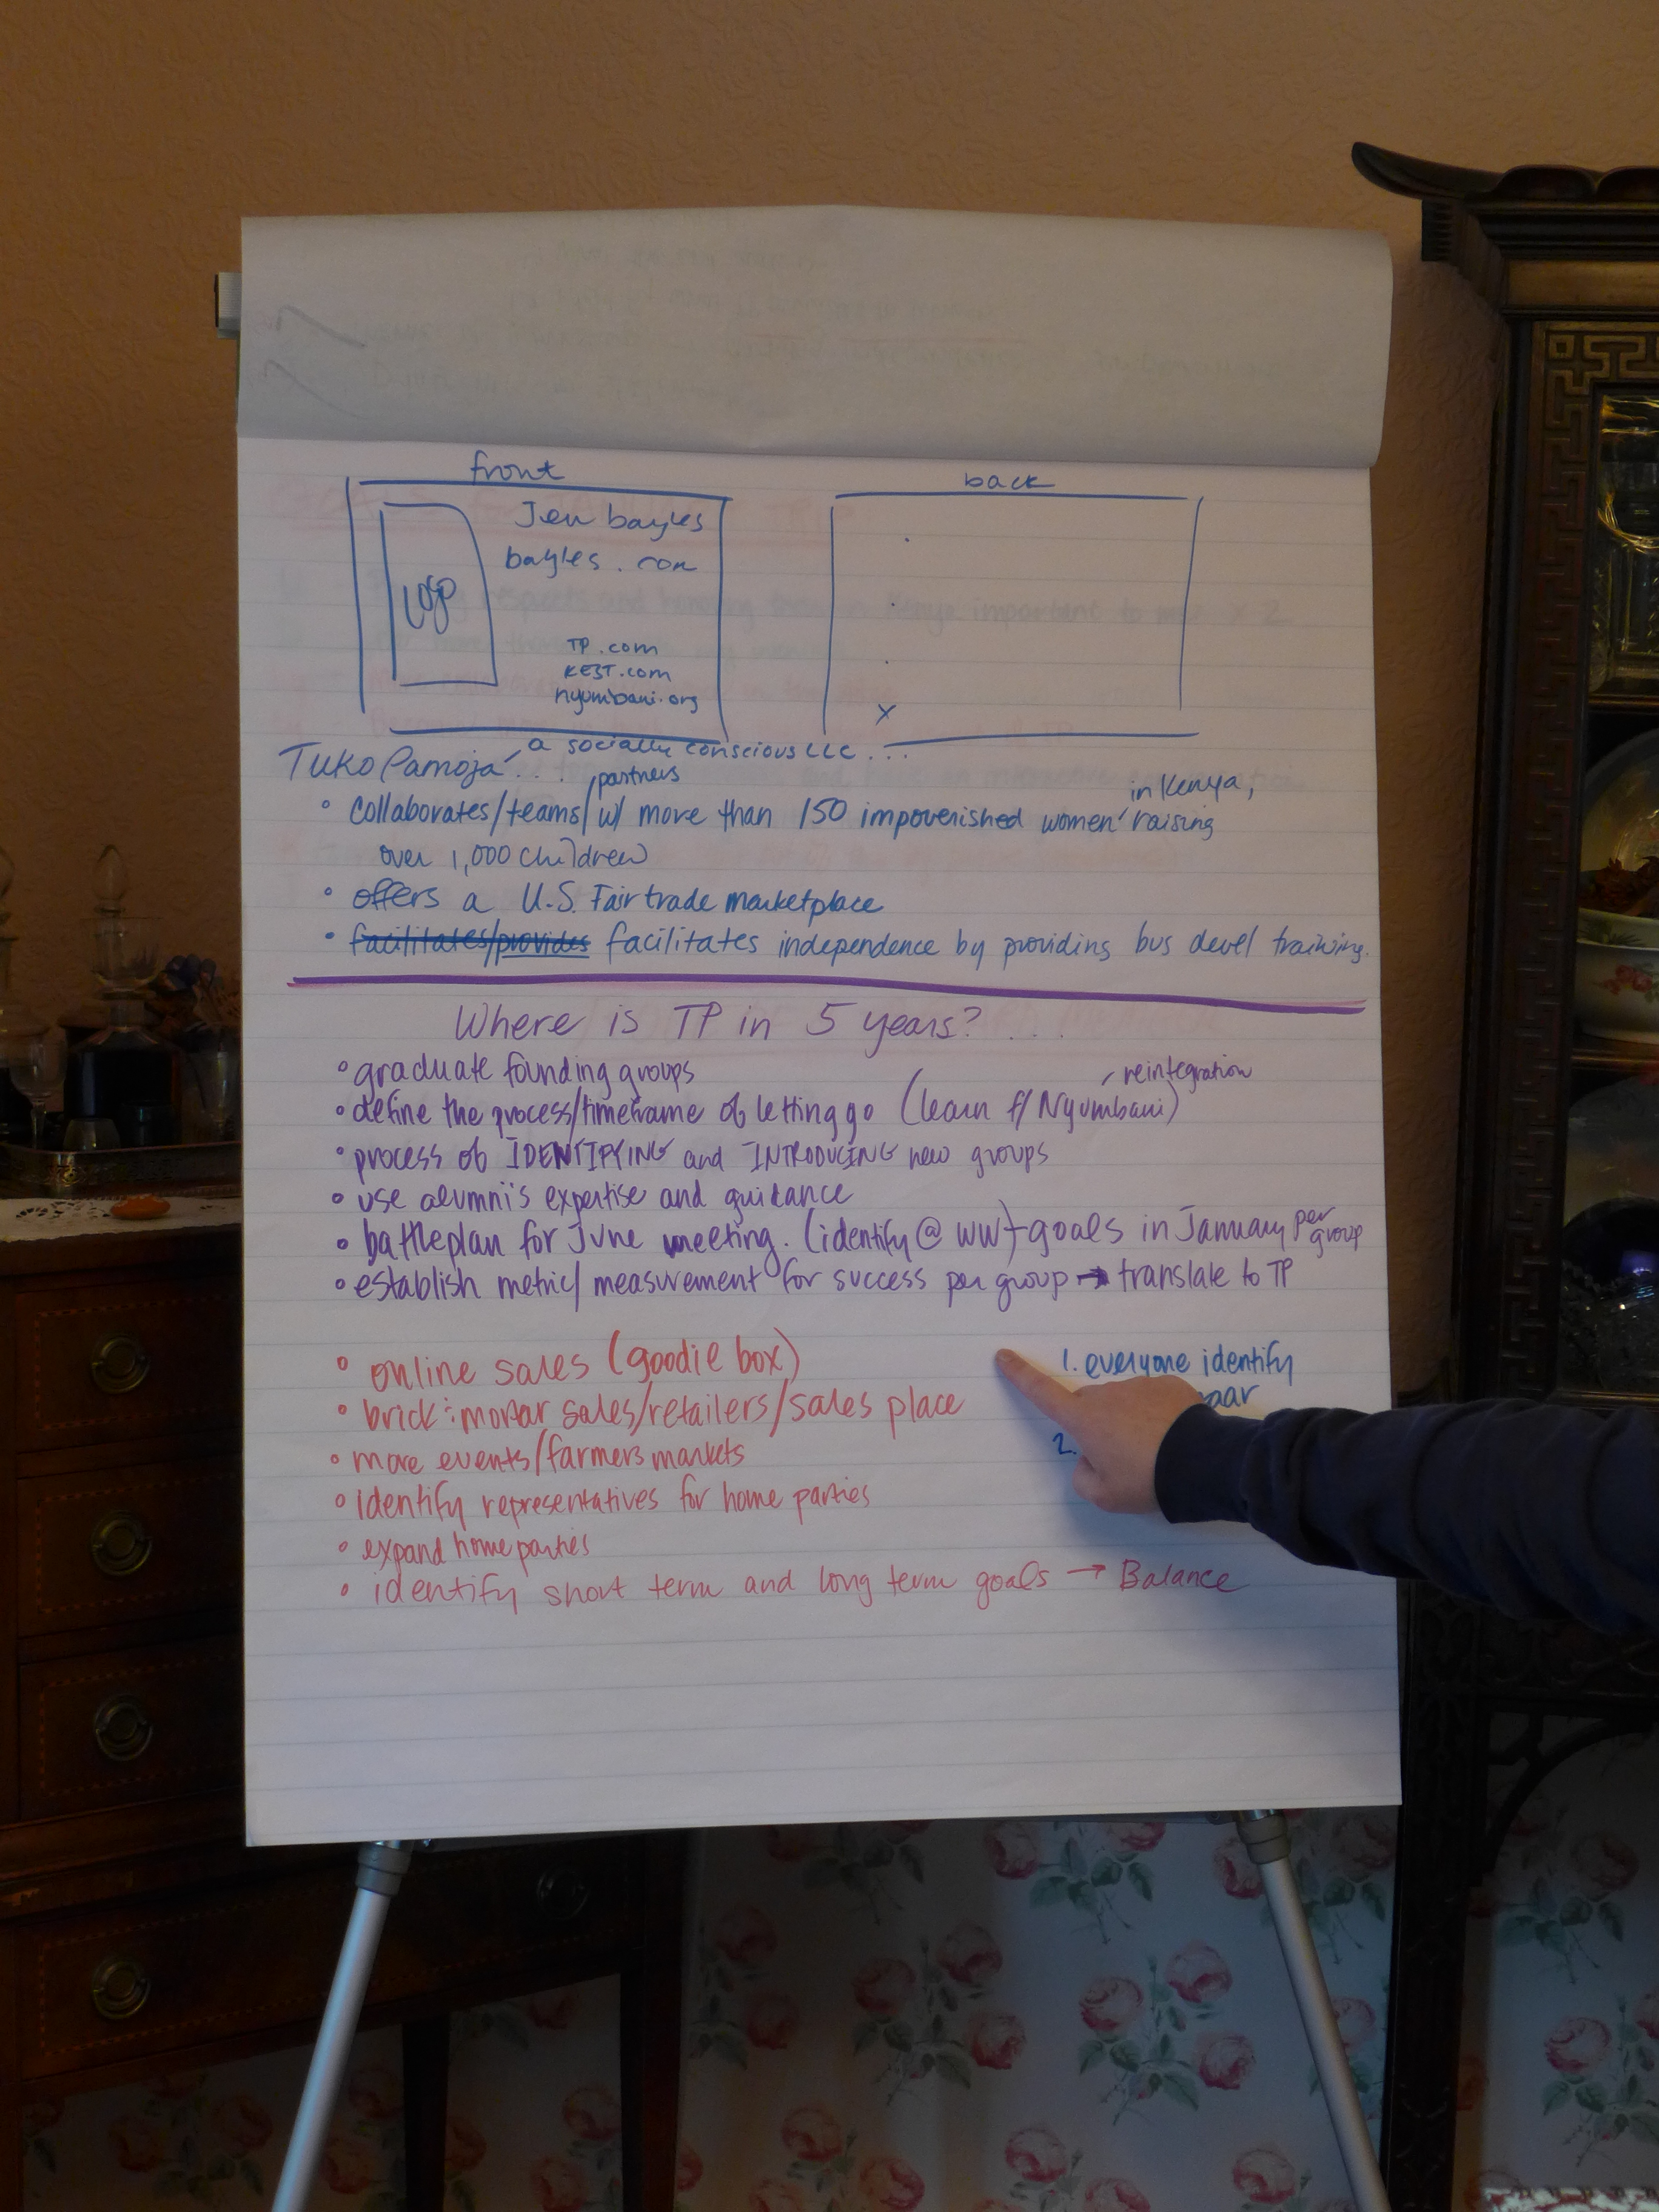 front
Jen bayles
bayles.com
logo
TP.com
KEST.com
nyumbani.org
back
x
a socially conscious LLC...
Tuko Pamoja...
partners
in Kenya,
• collaborates/teams/ w/ more than 150 impoverished women raising
over 1,000 children
• offers a U.S. Fair trade marketplace
• facilitates/provides facilitates independence by providing bus devel training.
Where is TP in 5 years?...
• graduate founding groups
reintegration
• define the process/timeframe of letting go (learn f/ Nyumbani)
• process of IDENTIFYING and INTRODUCING new groups
• use alumni's expertise and guidance
• battleplan for June meeting. (identify @ WW) - goals in January per group
• establish metric/measurement for success per group → translate to TP
• online sales (goodie box)
• brick : mortar sales/retailers/sales place
• more events/farmers markets
• identify representatives for home parties
• expand home parties
• identify short term and long term goals → Balance
1. everyone identify
2.